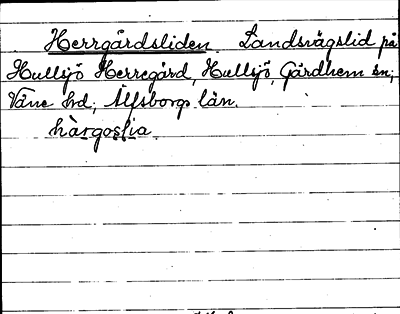 Herrgårdsliden. Landsvägslid på
Hullsjö Herregård, Hullsjö, Gärdhem sn;
Väne hd; Älfsborgs län.
hàrgoslia.